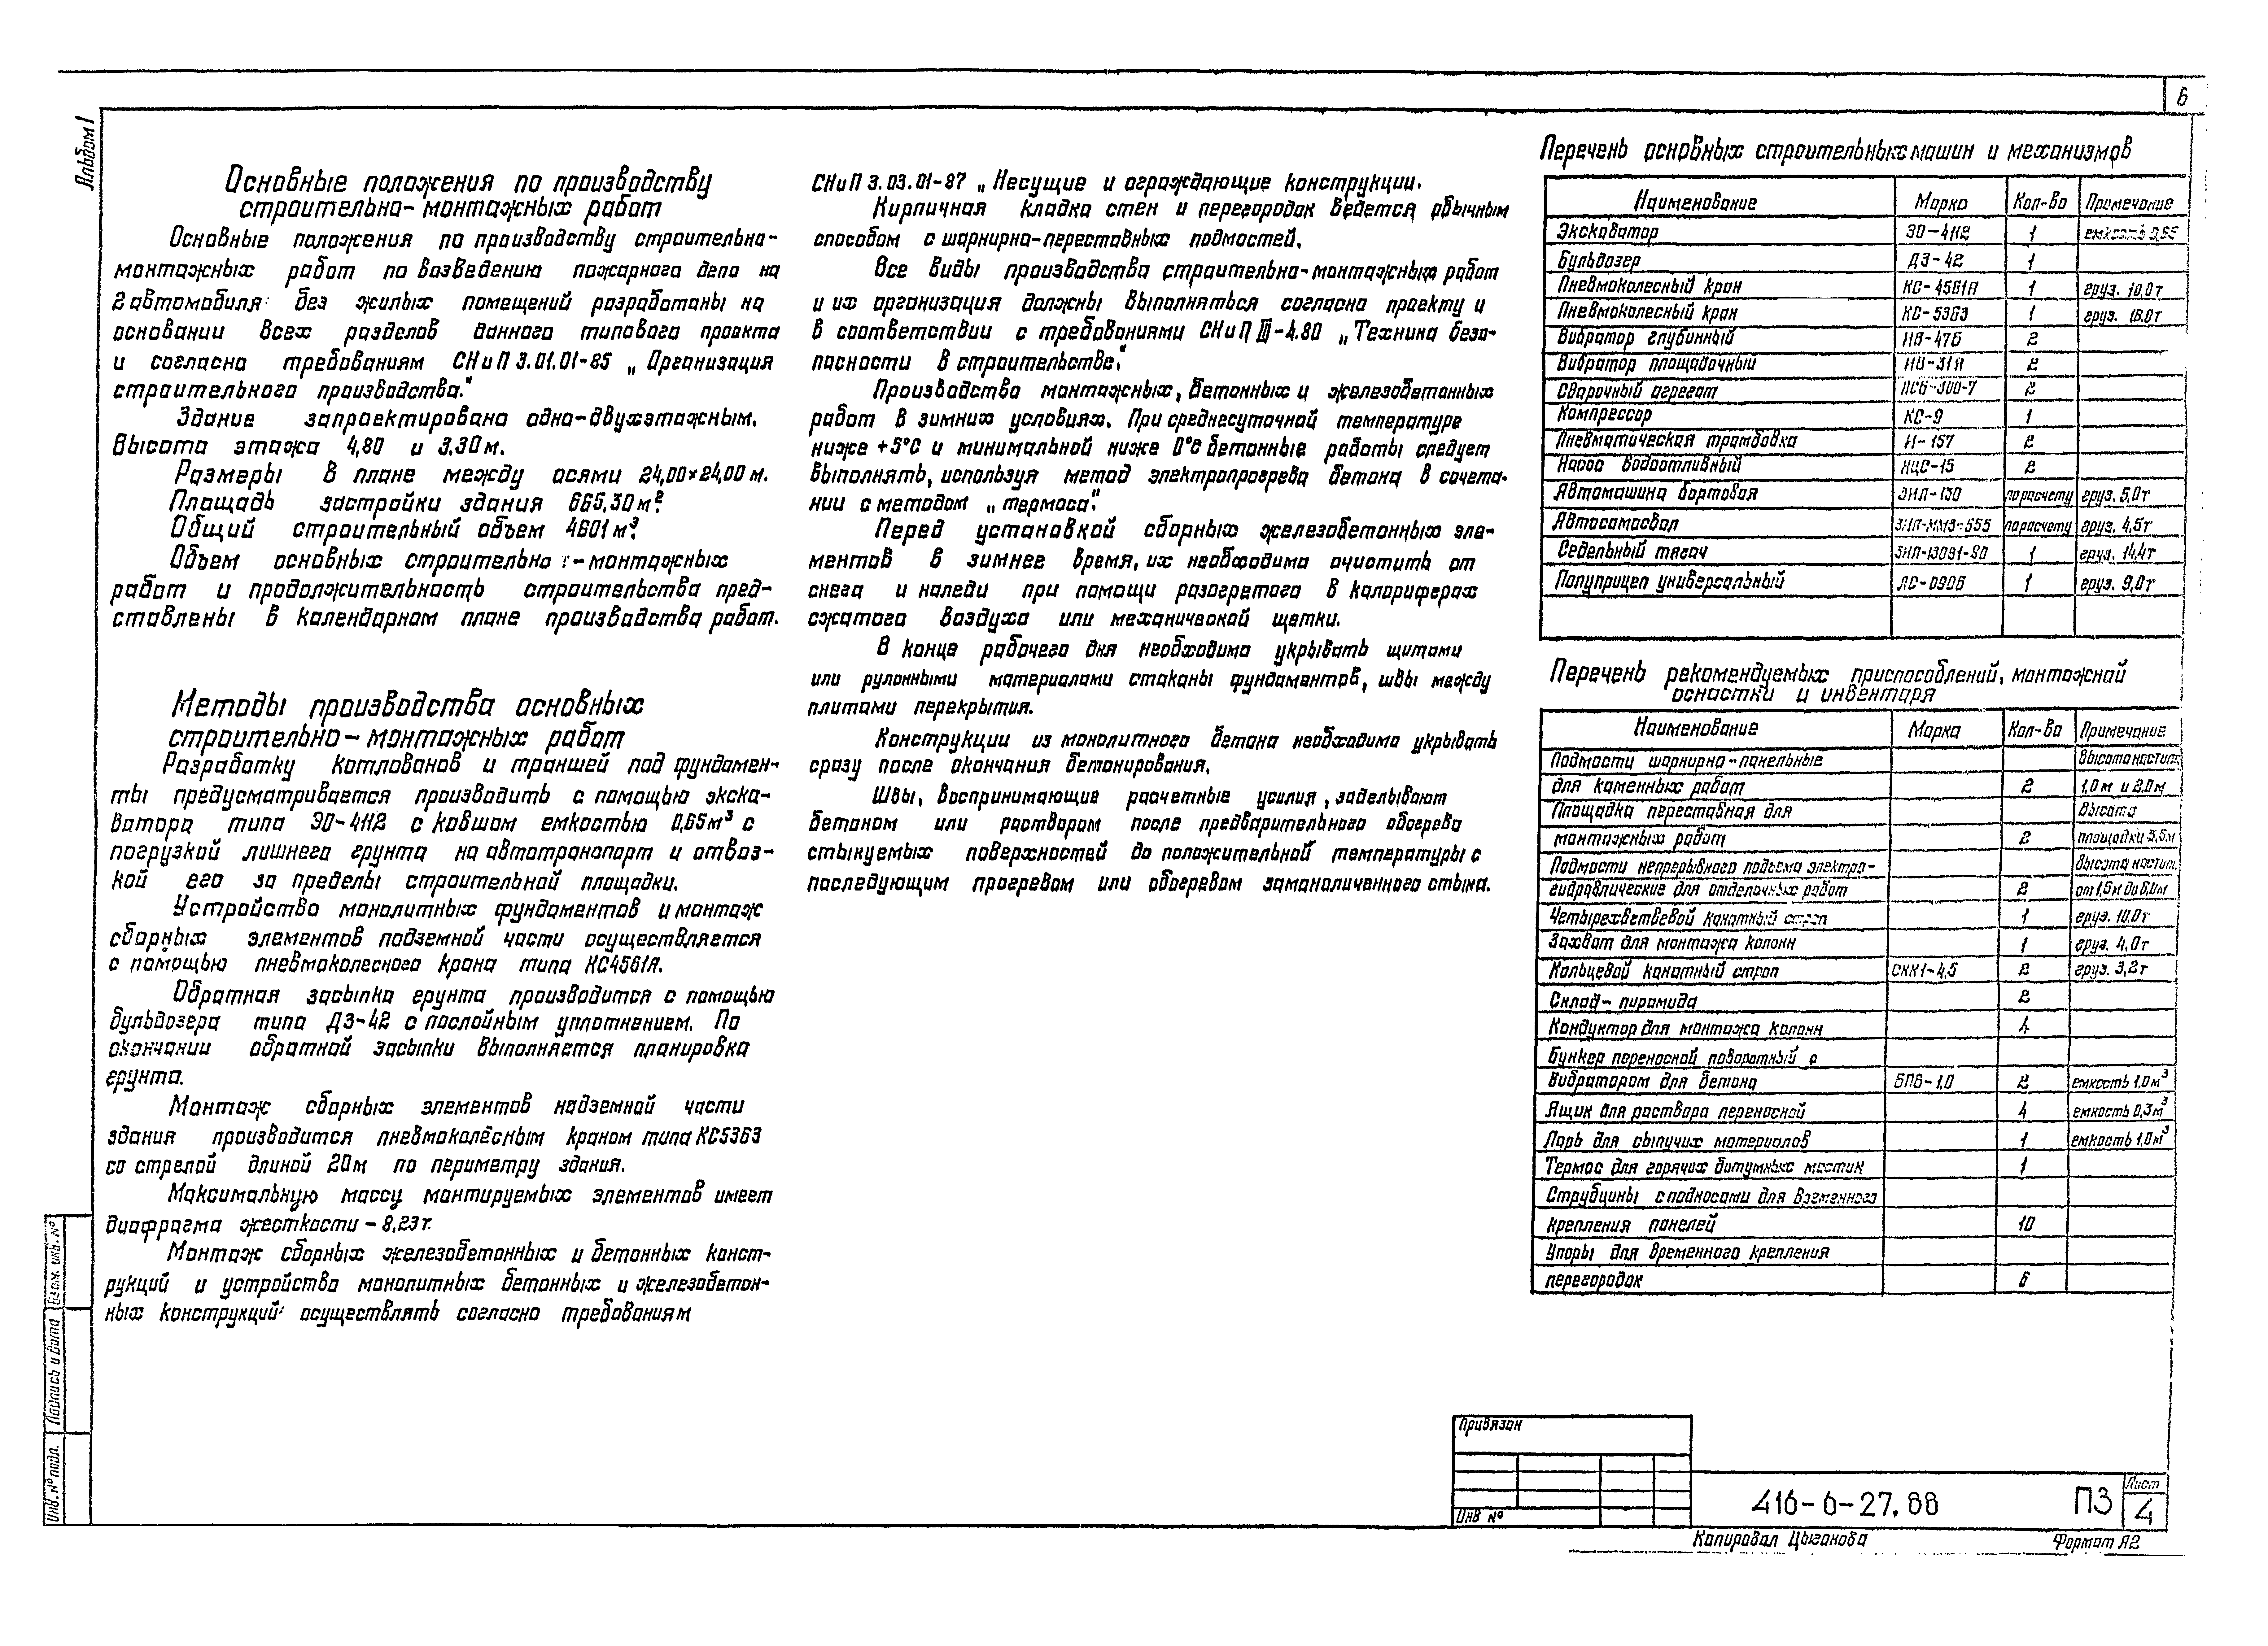 6
Альбом I
Основные положения по производству
строительно-монтажных работ
Основные положения по производству строительно-
монтажных работ по возведению пожарного депо на
2 автомобиля без жилых помещений разработаны на
основании всех разделов данного типового проекта
и согласно требованиям СНиП 3.01.01-85 „Организация
строительного производства."
Здание запроектировано одно-двухэтажным.
Высота этажа 4,80 и 3,30 м.
Размеры в плане между осями 24,00×24,00 м.
Площадь застройки здания 665,30 м².
Общий строительный объем 4601 м³.
Объем основных строительно-монтажных
работ и продолжительность строительства пред-
ставлены в календарном плане производства работ.
Методы производства основных
строительно-монтажных работ
Разработку котлованов и траншей под фундамен-
ты предусматривается производить с помощью экска-
ватора типа ЭО-4112 с ковшом емкостью 0,65 м³ с
погрузкой лишнего грунта на автотранспорт и отвоз-
кой его за пределы строительной площадки.
Устройство монолитных фундаментов и монтаж
сборных элементов подземной части осуществляется
с помощью пневмоколесного крана типа КС4561А.
Обратная засыпка грунта производится с помощью
бульдозера типа ДЗ-42 с послойным уплотнением. По
окончании обратной засыпки выполняется планировка
грунта.
Монтаж сборных элементов надземной части
здания производится пневмоколёсным краном типа КС5363
со стрелой длиной 20м по периметру здания.
Максимальную массу монтируемых элементов имеет
диафрагма жесткости - 8,23т.
Монтаж сборных железобетонных и бетонных конст-
рукций и устройство монолитных бетонных и железобетон-
ных конструкций осуществлять согласно требованиям
СНиП 3.03.01-87 „Несущие и ограждающие конструкции.
Кирпичная кладка стен и перегородок ведется обычным
способом с шарнирно-переставных подмостей.
Все виды производства строительно-монтажных работ
и их организация должны выполняться согласно проекту и
в соответствии с требованиями СНиП III-4.80 „Техника безо-
пасности в строительстве."
Производство монтажных, бетонных и железобетонных
работ в зимних условиях. При среднесуточной температуре
ниже +5°С и минимальной ниже 0°С бетонные работы следует
выполнять, используя метод электропрогрева бетона в сочета-
нии с методом „термоса."
Перед установкой сборных железобетонных эле-
ментов в зимнее время, их необходимо очистить от
снега и наледи при помощи разогретого в калориферах
сжатого воздуха или механической щетки.
В конце рабочего дня необходимо укрывать щитами
или рулонными материалами стаканы фундаментов, швы между
плитами перекрытия.
Конструкции из монолитного бетона необходимо укрывать
сразу после окончания бетонирования.
Швы, воспринимающие расчетные усилия, заделывают
бетоном или раствором после предварительного обогрева
стыкуемых поверхностей до положительной температуры с
последующим прогревом или обогревом замоноличенного стыка.
Перечень основных строительных машин и механизмов
Наименование Марка Кол-во Примечание
Экскаватор ЭО-4112 1 емкость 0,65
Бульдозер ДЗ-42 1
Пневмоколесный кран КС-4561А 1 груз. 10,0т
Пневмоколесный кран КС-5363 1 груз. 16.0т
Вибратор глубинный ИВ-47Б 2
Вибратор площадочный ИВ-31А 2
Сварочный агрегат ПСБ-300-7 2
Компрессор КС-9 1
Пневматическая трамбовка И-157 2
Насос водоотливный НЦС-15 2
Автомашина бортовая ЗИЛ-130 по расчету груз. 5,0т
Автосамосвал ЗИЛ-ММЗ-555 по расчету груз. 4,5т
Седельный тягач ЗИЛ-130В1-80 1 груз. 14,4т
Полуприцеп универсальный ЛС-0906 1 груз. 9,0т
Перечень рекомендуемых приспособлений, монтажной
оснастки и инвентаря
Наименование Марка Кол-во Примечание
Подмости шарнирно-панельные Высота настил.
для каменных работ 2 1,0м и 2,0м
Площадка переставная для Высота
монтажных работ 2 площадки 3,6м
Подмости непрерывного подъема электро- Высота настил.
гидравлические для отделочных работ 2 от 1,5м до 6,0м
Четырехветвевой канатный строп 1 груз. 10,0т
Захват для монтажа колонн 1 груз. 4,0т
Кольцевой канатный строп СКК1-4,5 2 груз. 3,2т
Склад-пирамида 2
Кондуктор для монтажа колонн 4
Бункер переносной поворотный с
вибратором для бетона БПВ-1,0 2 емкость 1,0м³
Ящик для раствора переносной 4 емкость 0,3м³
Ларь для сыпучих материалов 1 емкость 1,0м³
Термос для горячих битумных мастик 1
Струбцины с подкосами для временного
крепления панелей 10
Упоры для временного крепления
перегородок 6
Привязан
Инв №
416-6-27.88 ПЗ
Лист
4
Копировал Цыганова Формат А2
Взам. инв. №
Подпись и дата
Инв. № подл.